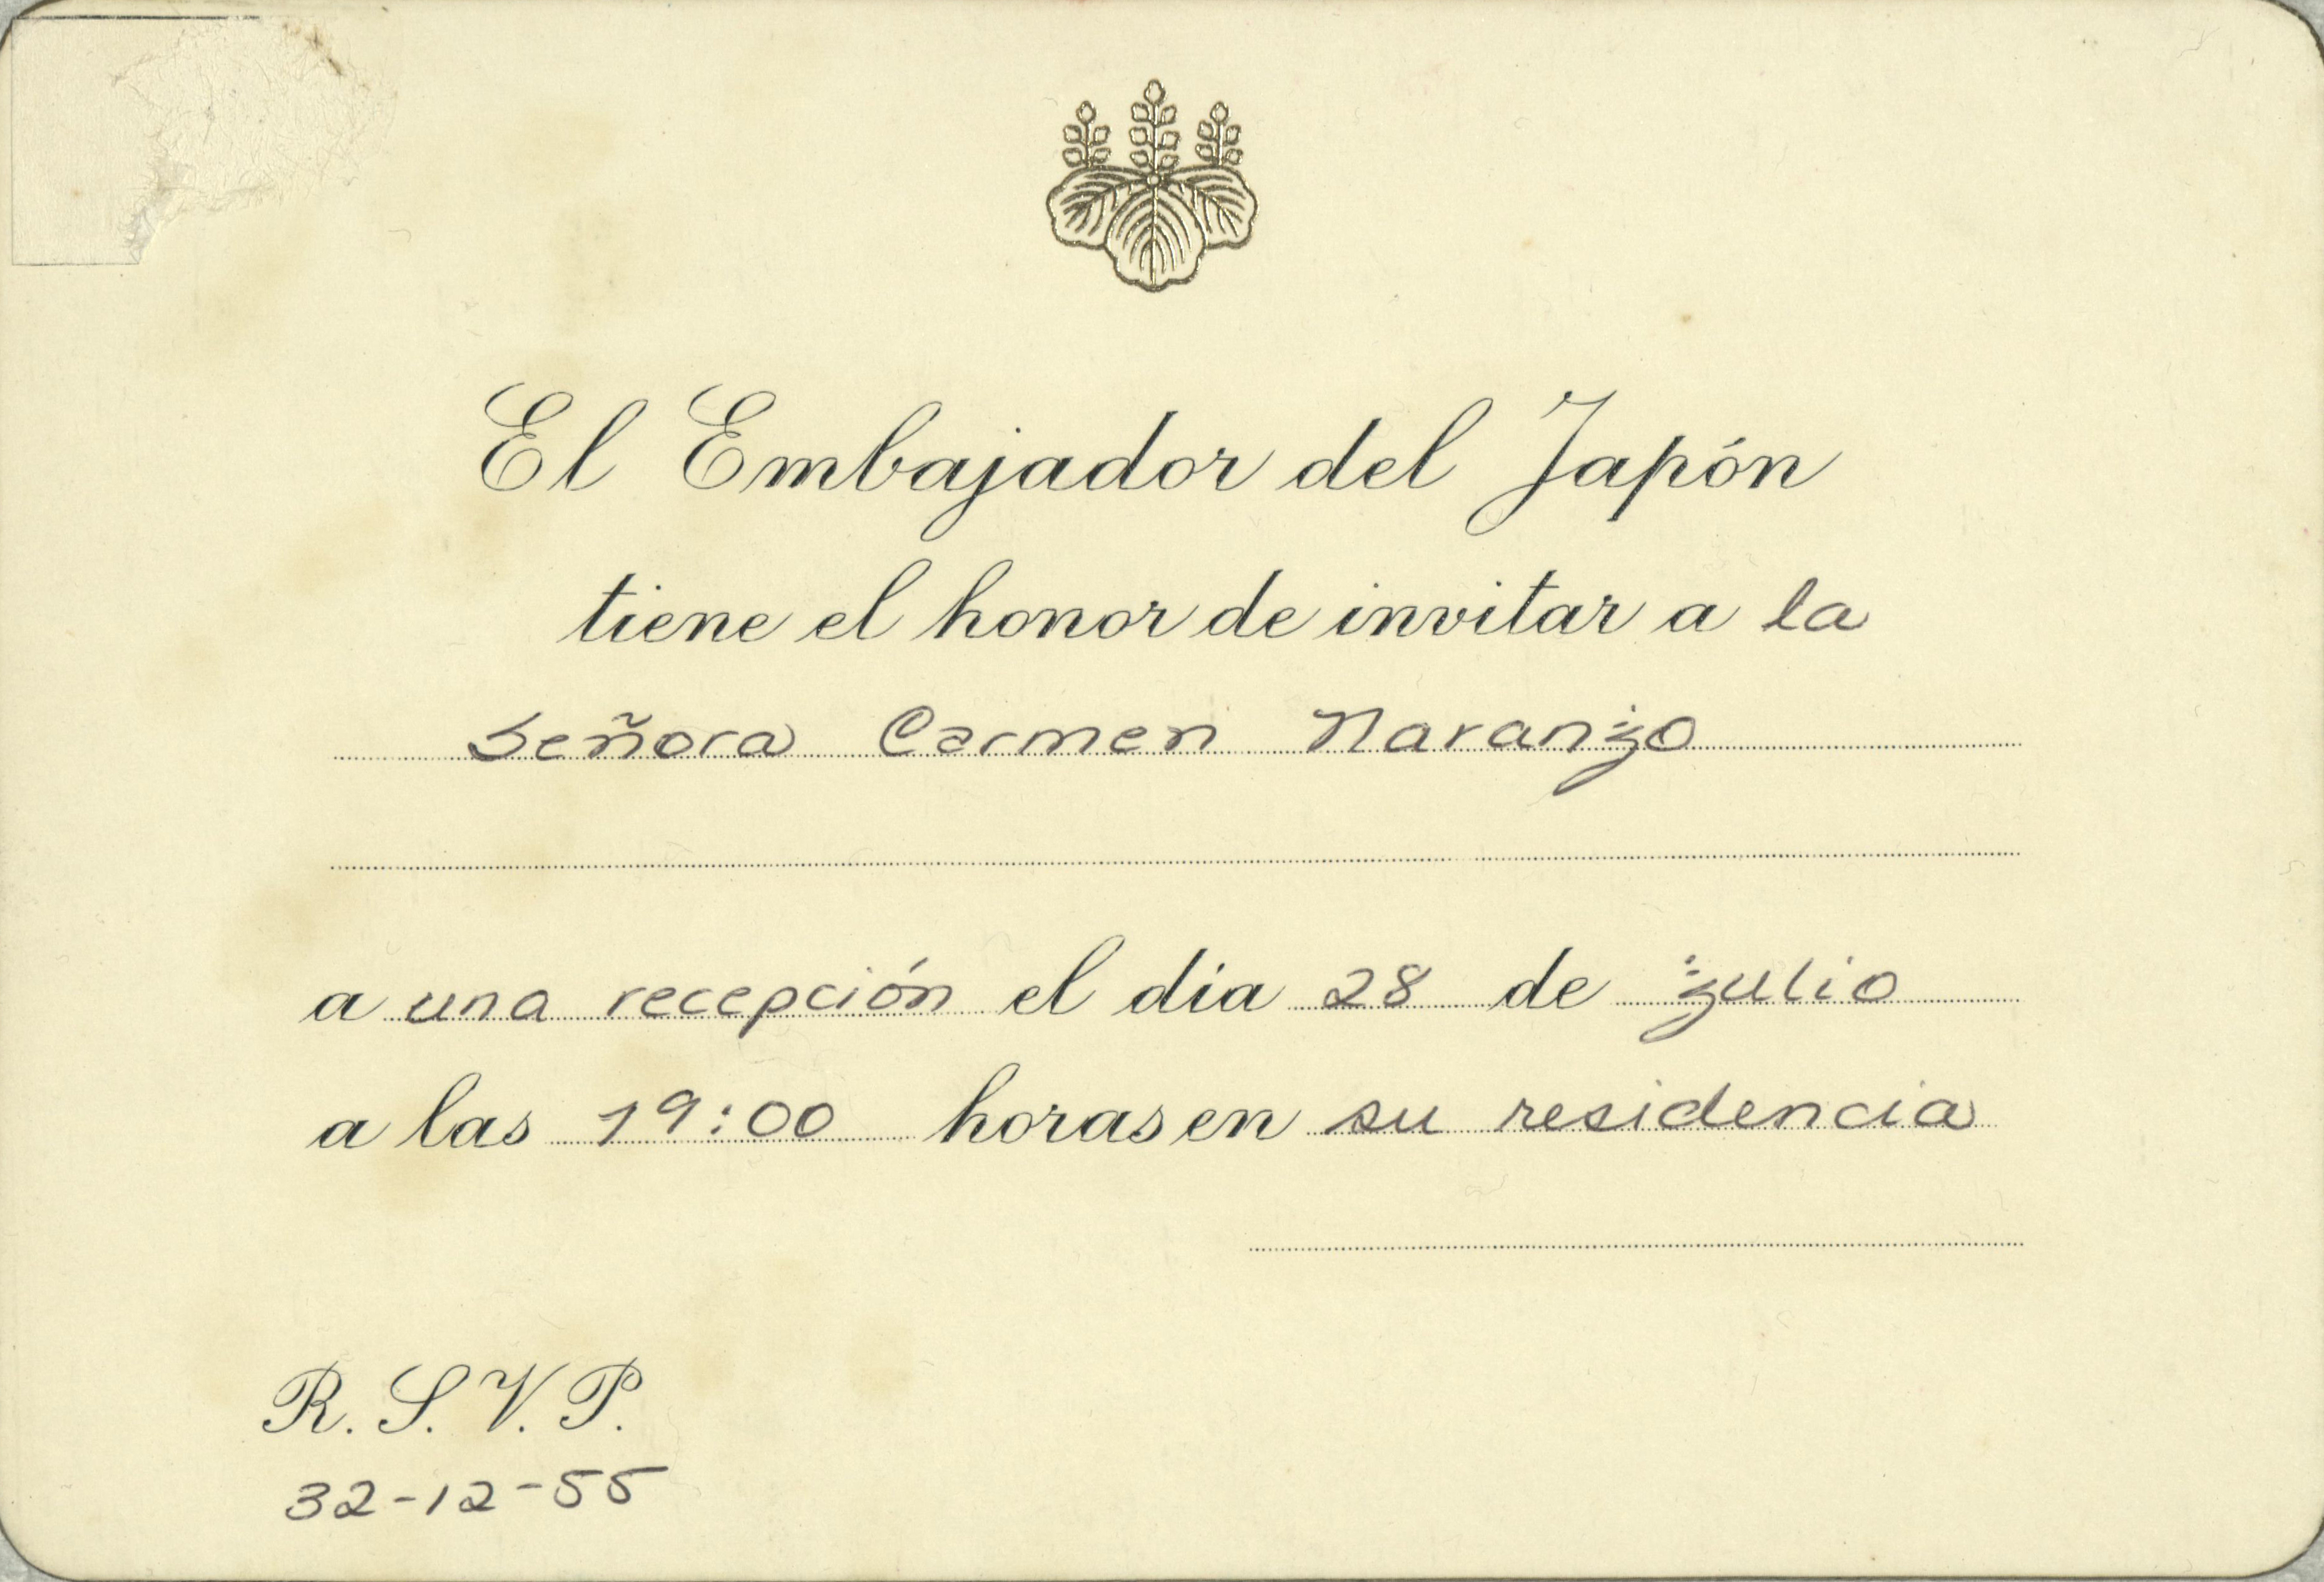 El Embajador del Japón
tiene el honor de invitar a la
Señora Carmen Naranjo
a una recepción el dia 28 de julio
a las 19:00 horas en su residencia
R. S. V. P.
32-12-55